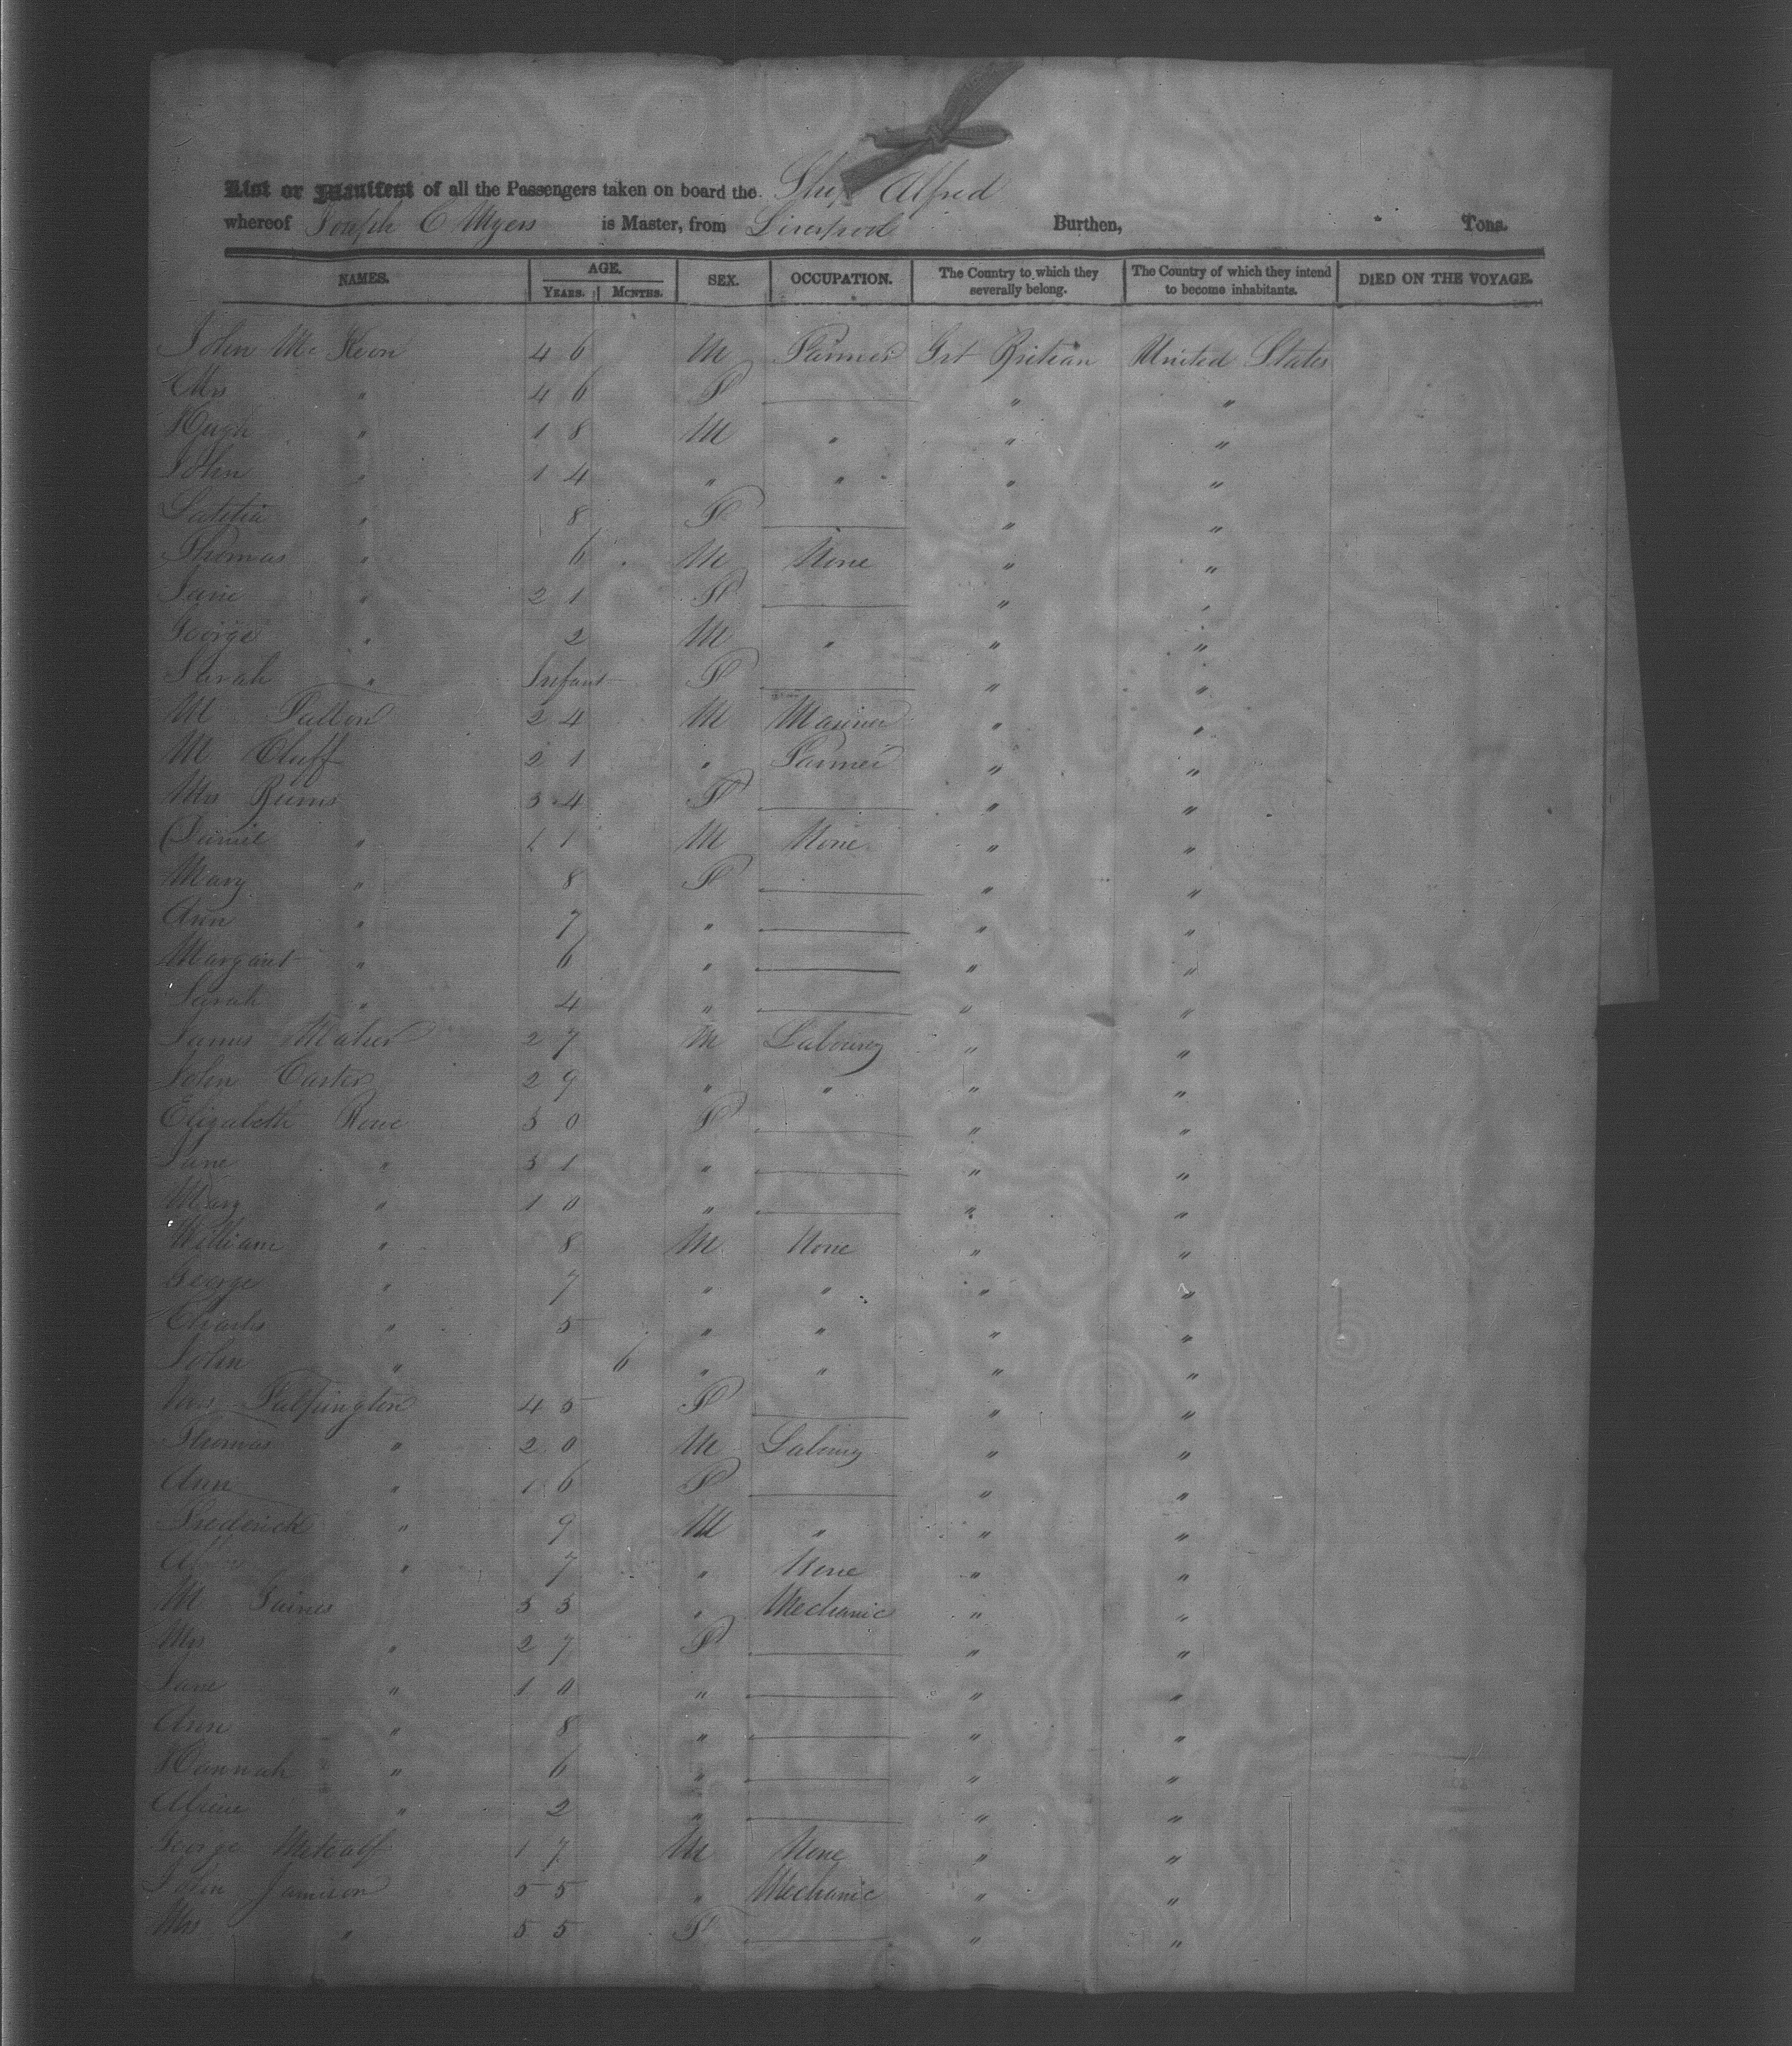 List or Manifest of all the Passengers taken on board the Ship Alfred
whereof Joseph C Myers is Master, from Liverpool Burthen, Tons.
NAMES. AGE. SEX. OCCUPATION. The Country to which they severally belong. The Country of which they intend to become inhabitants. DIED ON THE VOYAGE.
YEARS. MONTHS.
John Mc Keon 46 M Farmer Grt Britian United States
Mrs " 46 F " "
Hugh " 18 M " " "
John " 14 " " " "
Latitia " 8 F " "
Thomas " 6 M None " "
Jane " 21 F " "
George " 2 M " " "
Sarah " Infant F " "
M 24 M Mariner " "
M Cluff 21 " Farmer " "
Mrs 34 F " "
" 11 M None " "
Mary " 8 F " "
Ann " 7 " " "
Margaret " 6 " " "
Sarah " 4 " " "
James 27 M Labourer " "
John Carter 29 " " " "
Elizabeth Rowe 30 F " "
Jane " 31 " " "
Mary " 10 " " "
William " 8 M None " "
George " 7 " " " "
Charles " 5 " " " "
John " 6 " " " "
Mrs 45 F " "
Thomas " 20 M Labourer " "
Ann " 16 F " "
Frederick " 9 M " " "
" 7 " None " "
M 33 " Mechanic " "
Mrs " 27 F " "
Jane " 10 " " "
Ann " 8 " " "
Hannah " 6 " " "
" 2 " " "
George Metcalf 17 M None " "
John Jamison 55 " Mechanic " "
Mrs " 55 F " "